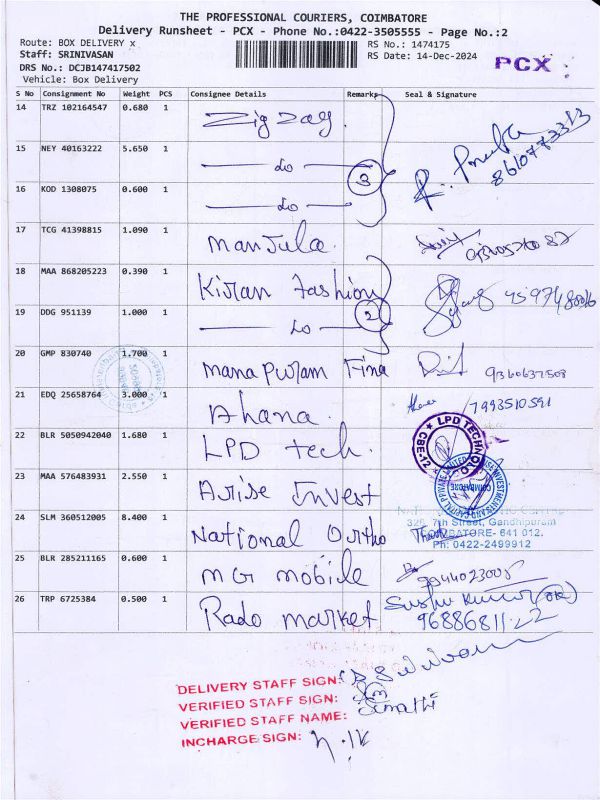 THE PROFESSIONAL COURIERS, COIMBATORE
Delivery Runsheet - PCX - Phone No.:0422-3505555 - Page No.:2
Route: BOX DELIVERY x
RS No.: 1474175
Staff: SRINIVASAN
RS Date: 14-Dec-2024
PCX
DRS No.: DCJB147417502
Vehicle: Box Delivery
S No Consignment No Weight PCS Consignee Details Remarks Seal & Signature
14 TRZ 102164547 0.680 1 Zig Zag.
15 NEY 40163222 5.650 1 do
3
16 KOD 1308075 0.600 1 do
17 TCG 41398815 1.090 1 Manjula.
18 MAA 868205223 0.390 1 Kiran Fashion
2
19 DDG 951139 1.000 1 do
20 GMP 830740 1.700 1 Manapuram Fina
21 EDQ 25658764 3.000 1 Ahana. 7993510591
22 BLR 5050942040 1.680 1 LPD tech. LPD TECHNOLO CBE-12
23 MAA 576483931 2.550 1 Arise Invest COIMBATORE
24 SLM 360512005 8.400 1 National Ortho
7th Street, Gandhipuram
641 012.
Ph: 0422-2499912
25 BLR 285211165 0.600 1 MG mobile
26 TRP 6725384 0.500 1 Rado market
DELIVERY STAFF SIGN:
VERIFIED STAFF SIGN:
VERIFIED STAFF NAME:
INCHARGE SIGN: